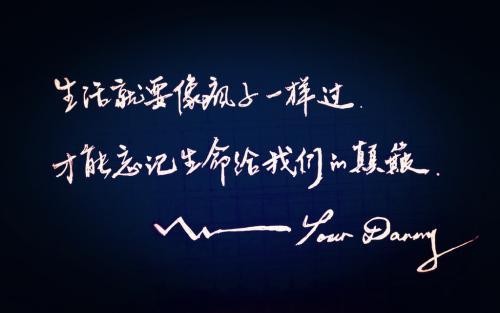 生活就要像疯子一样过.
才能忘记生命给我们的颠簸.
Your Danny